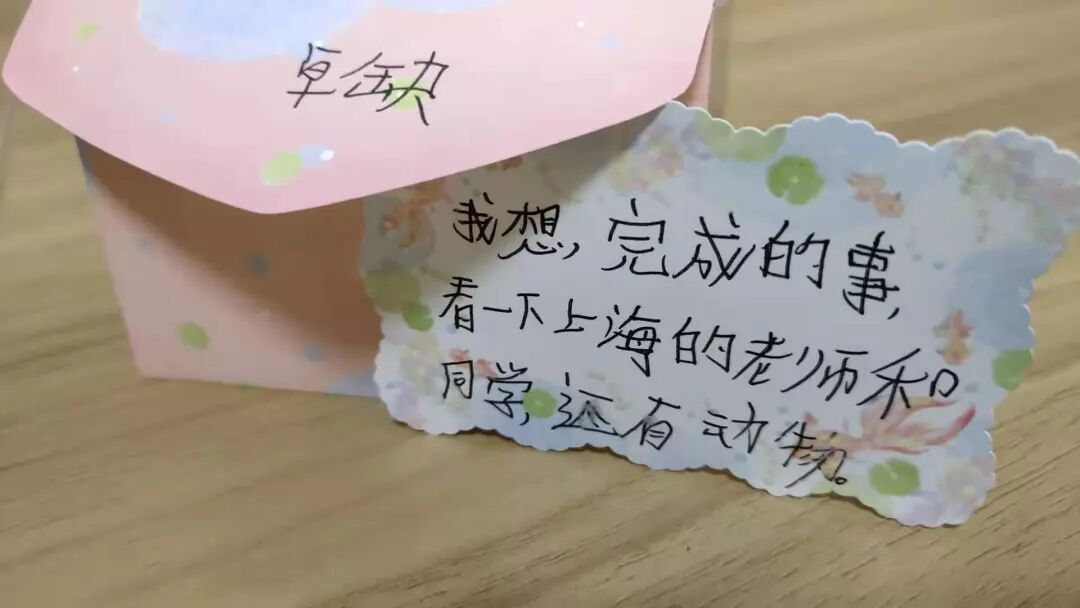 我想,完成的事,
看一下上海的老师和
同学,还有动物。